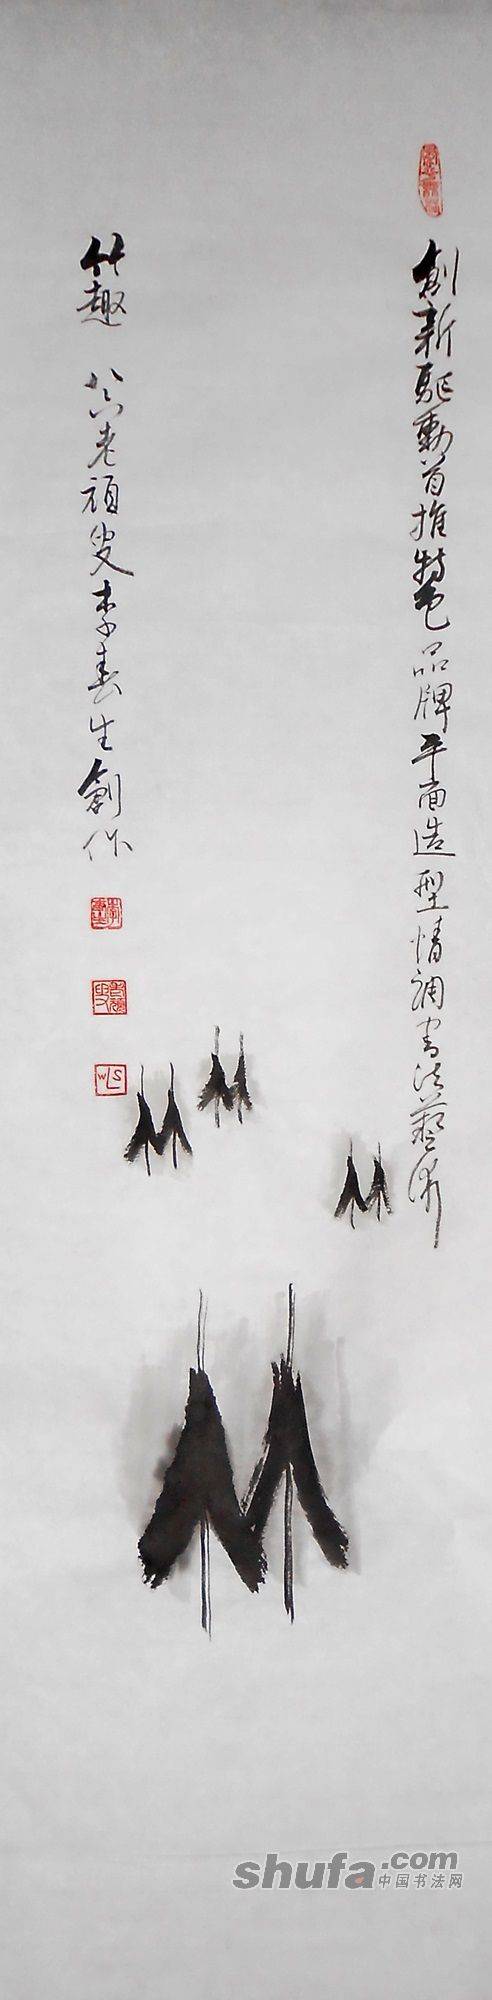 創新驱動首推特色品牌平面造型情調书法藝術
竹趣 八六老頑叟李春生創作
WLS
shufa.com
中国书法网